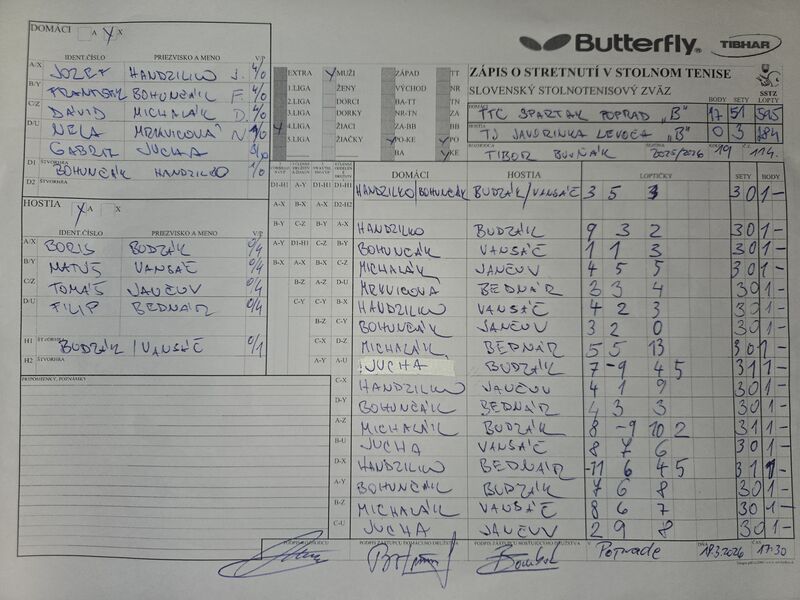 DOMÁCI A X
Butterfly TIBHAR
IDENT.ČÍSLO PRIEZVISKO A MENO V/P
A/X JOZEF HANDZILKO J. 4/0
B/Y FRANTIŠEK BOHUNČÁK F. 4/0
C/Z DÁVID MICHALÁK D. 4/0
D/U NELA MRKVICOVÁ N 1/0
GABRIEL JUCHA 3/0
D1 ŠTVORHRA BOHUNČÁK HANDZILKO 1/0
D2
EXTRA MUŽI ZÁPAD TT
1.LIGA ŽENY VÝCHOD NR
2.LIGA DORCI BA-TT TN
3.LIGA DORKY NR-TN ZA
4.LIGA ŽIACI ZA-BB BB
5.LIGA ŽIAČKY PO-KE PO
BA KE
ZÁPIS O STRETNUTÍ V STOLNOM TENISE
SLOVENSKÝ STOLNOTENISOVÝ ZVÄZ SSTZ
DOMÁCI BODY SETY LOPTY
TTC SPARTAK POPRAD „B" 17 51 595
HOSTIA TJ JAVORINKA LEVOČA „B" 0 3 284
TIBOR 2025/2026 19 114.
HOSTIA A X
IDENT.ČÍSLO PRIEZVISKO A MENO V/P
A/X BORIS BUDZÁK 0/4
B/Y MATÚŠ VANSÁČ 0/4
C/Z TOMÁŠ JANČUV 0/4
D/U FILIP BEDNÁR 0/4
H1 ŠTVORHRA BUDZÁK / VANSÁČ 0/1
H2
PRIPOMIENKY, POZNÁMKY
DOMÁCI HOSTIA LOPTIČKY SETY BODY
HANDZILKO/BOHUNČÁK BUDZÁK/VANSÁČ 3 5 3 3 0 1 -
HANDZILKO BUDZÁK 9 3 2 3 0 1 -
BOHUNČÁK VANSÁČ 1 1 3 3 0 1 -
MICHALÁK JANČUV 4 5 5 3 0 1 -
MRKVICOVA BEDNÁR 3 3 4 3 0 1 -
HANDZILKO VANSÁČ 4 2 3 3 0 1 -
BOHUNČÁK JANČUV 3 2 0 3 0 1 -
MICHALÁK BEDNÁR 5 5 13 3 0 1
JUCHA BUDZÁK 7 -9 4 5 3 1 1 -
HANDZILKO JANČUV 4 1 9 3 0 1 -
BOHUNČÁK BEDNÁR 4 3 3 3 0 1 -
MICHALÁK BUDZÁK 8 -9 10 2 3 1 1 -
JUCHA VANSÁČ 8 7 6 3 0 1 -
HANDZILKO BEDNÁR -11 6 4 5 3 1 1 -
BOHUNČÁK BUDZÁK 7 6 8 3 0 1 -
MICHALÁK VANSÁČ 8 6 7 3 0 1 -
JUCHA JANČUV 2 9 8 3 0 1 -
PODPIS ROZHODCU PODPIS ZÁSTUPCU DOMÁCEHO DRUŽSTVA PODPIS ZÁSTUPCU HOSTUJÚCEHO DRUŽSTVA V Poprade DŇA 18.3.2026 ČAS 17:30